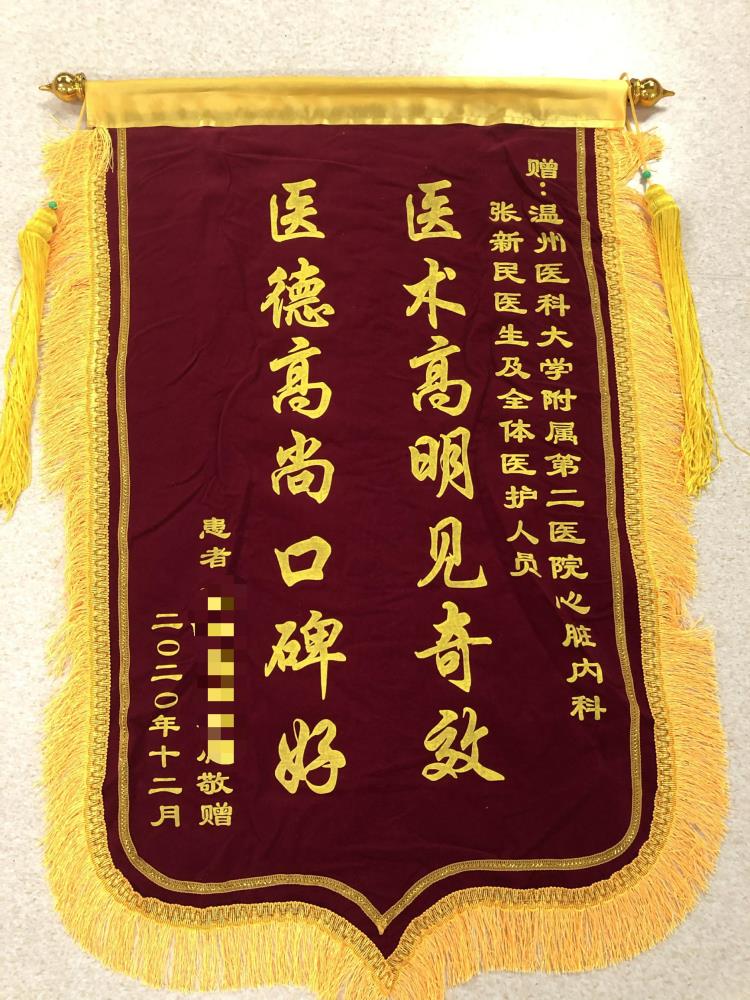 赠：温州医科大学附属第二医院心脏内科
张新民医生及全体医护人员
医术高明见奇效
医德高尚口碑好
患者
敬赠
二〇二〇年十二月